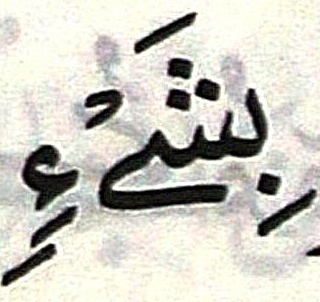 بِشَيْءٍ